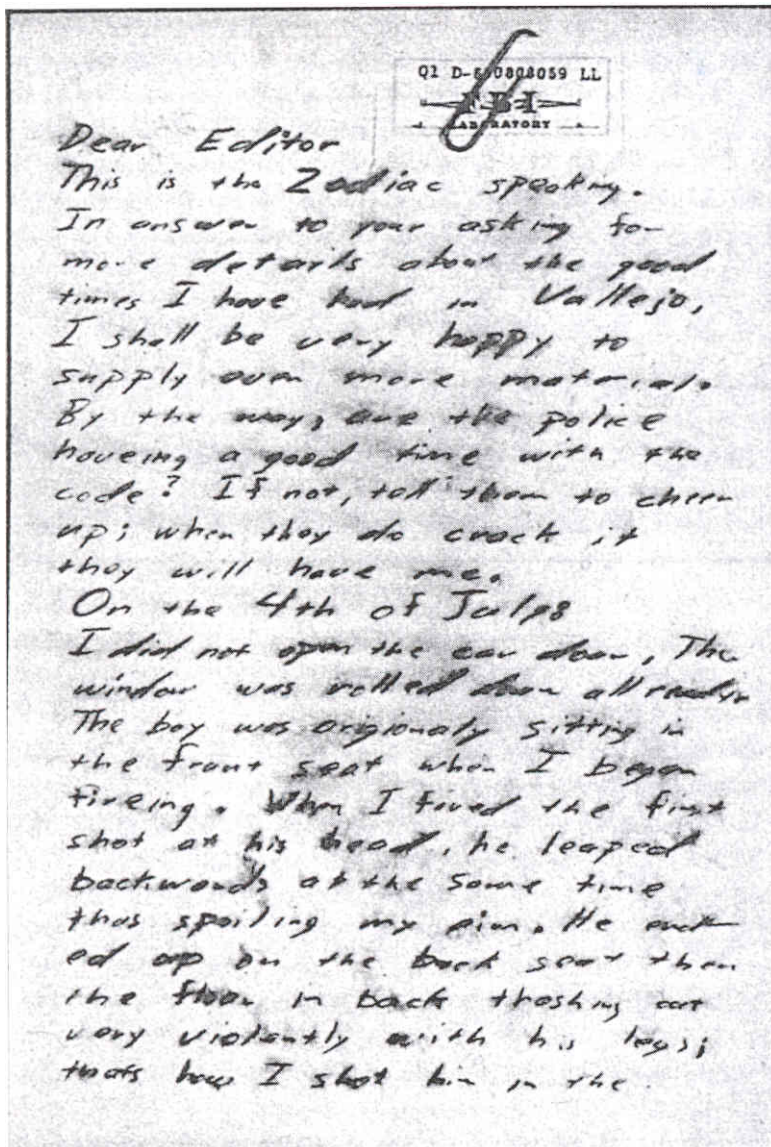 Q1 D-690808059 LL
FBI
LABORATORY
Dear Editor
This is the Zodiac speaking.
In answer to your asking for
more details about the good
times I have had in Vallejo,
I shall be very happy to
supply even more material.
By the way, are the police
haveing a good time with the
code? If not, tell them to cheer
up; when they do crack it
they will have me.
On the 4th of July:
I did not open the car door, The
window was rolled down all ready.
The boy was origionaly sitting in
the front seat when I began
fireing. When I fired the first
shot at his head, he leaped
backwards at the same time
thus spoiling my aim. He end-
ed up on the back seat then
the floor in back thashing out
very violently with his legs;
thats how I shot him in the